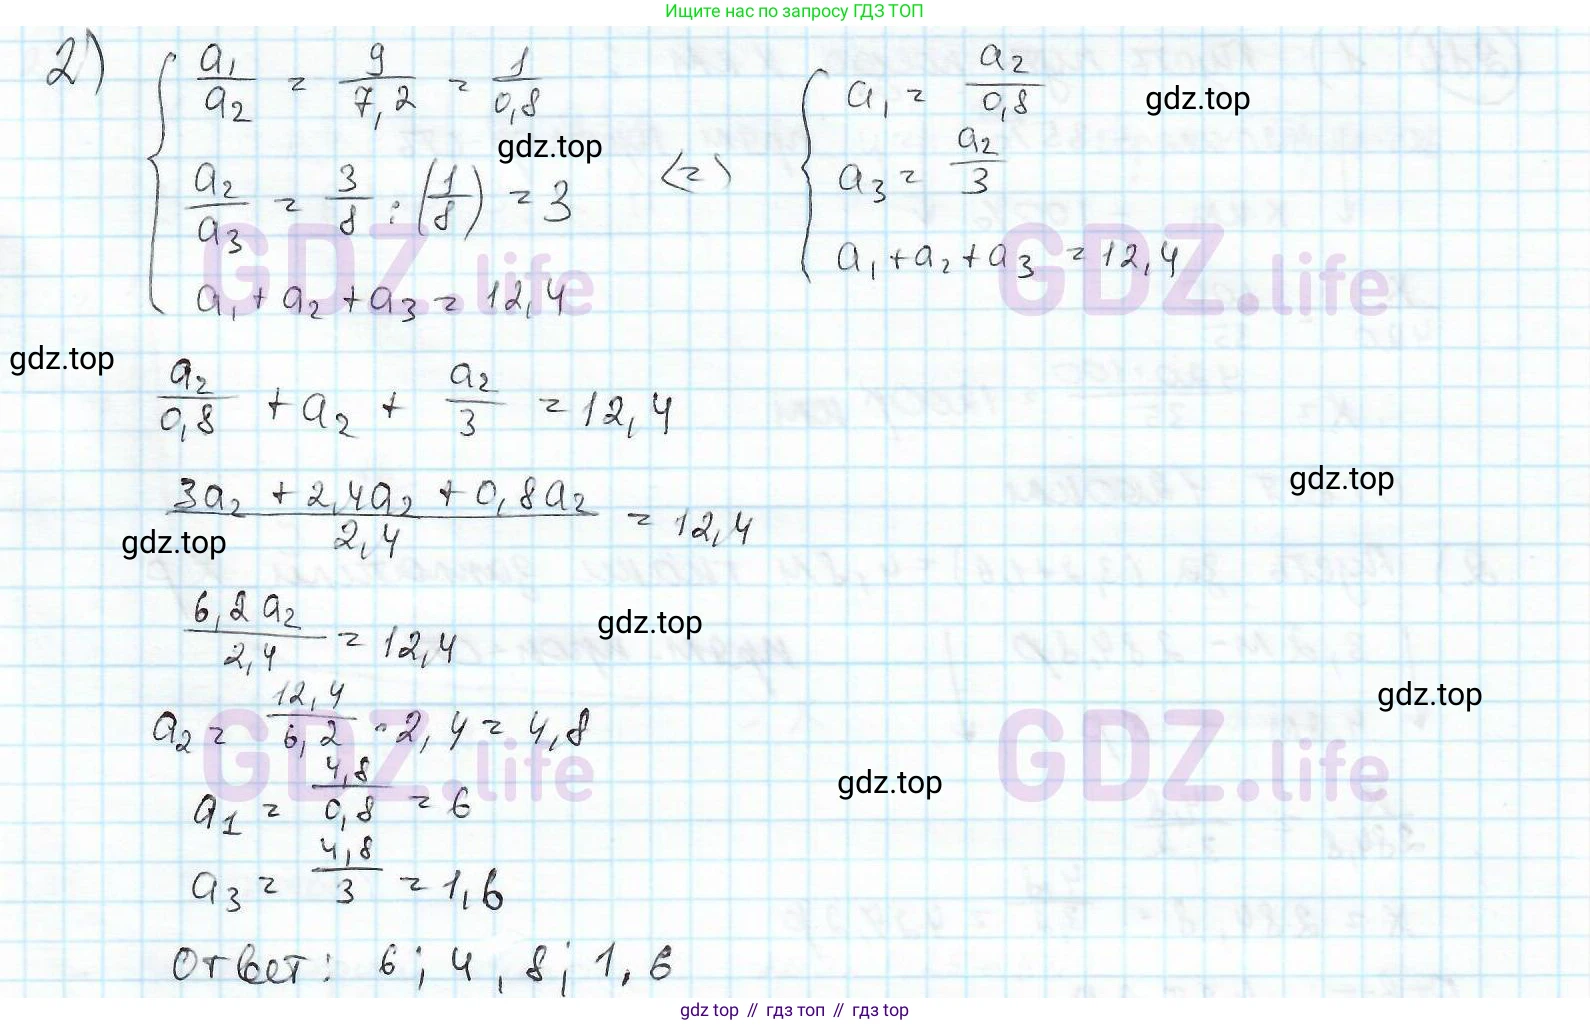 Ищите нас по запросу ГДЗ ТОП
2) { a₁/a₂ = 9/7,2 = 1/0,8
a₂/a₃ = 3/8 : (1/8) = 3
a₁ + a₂ + a₃ = 12,4
<=>
{ a₁ = a₂/0,8
a₃ = a₂/3
a₁ + a₂ + a₃ = 12,4
gdz.top
gdz.top
GDZ.life
GDZ.life
gdz.top
a₂/0,8 + a₂ + a₂/3 = 12,4
gdz.top
(3a₂ + 2,4a₂ + 0,8a₂)/2,4 = 12,4
gdz.top
6,2a₂/2,4 = 12,4
gdz.top
gdz.top
a₂ = 12,4/6,2 · 2,4 = 4,8
GDZ.life
GDZ.life
gdz.top
a₁ = 4,8/0,8 = 6
a₃ = 4,8/3 = 1,6
Ответ: 6; 4,8; 1,6
gdz top // гдз топ // гдз top